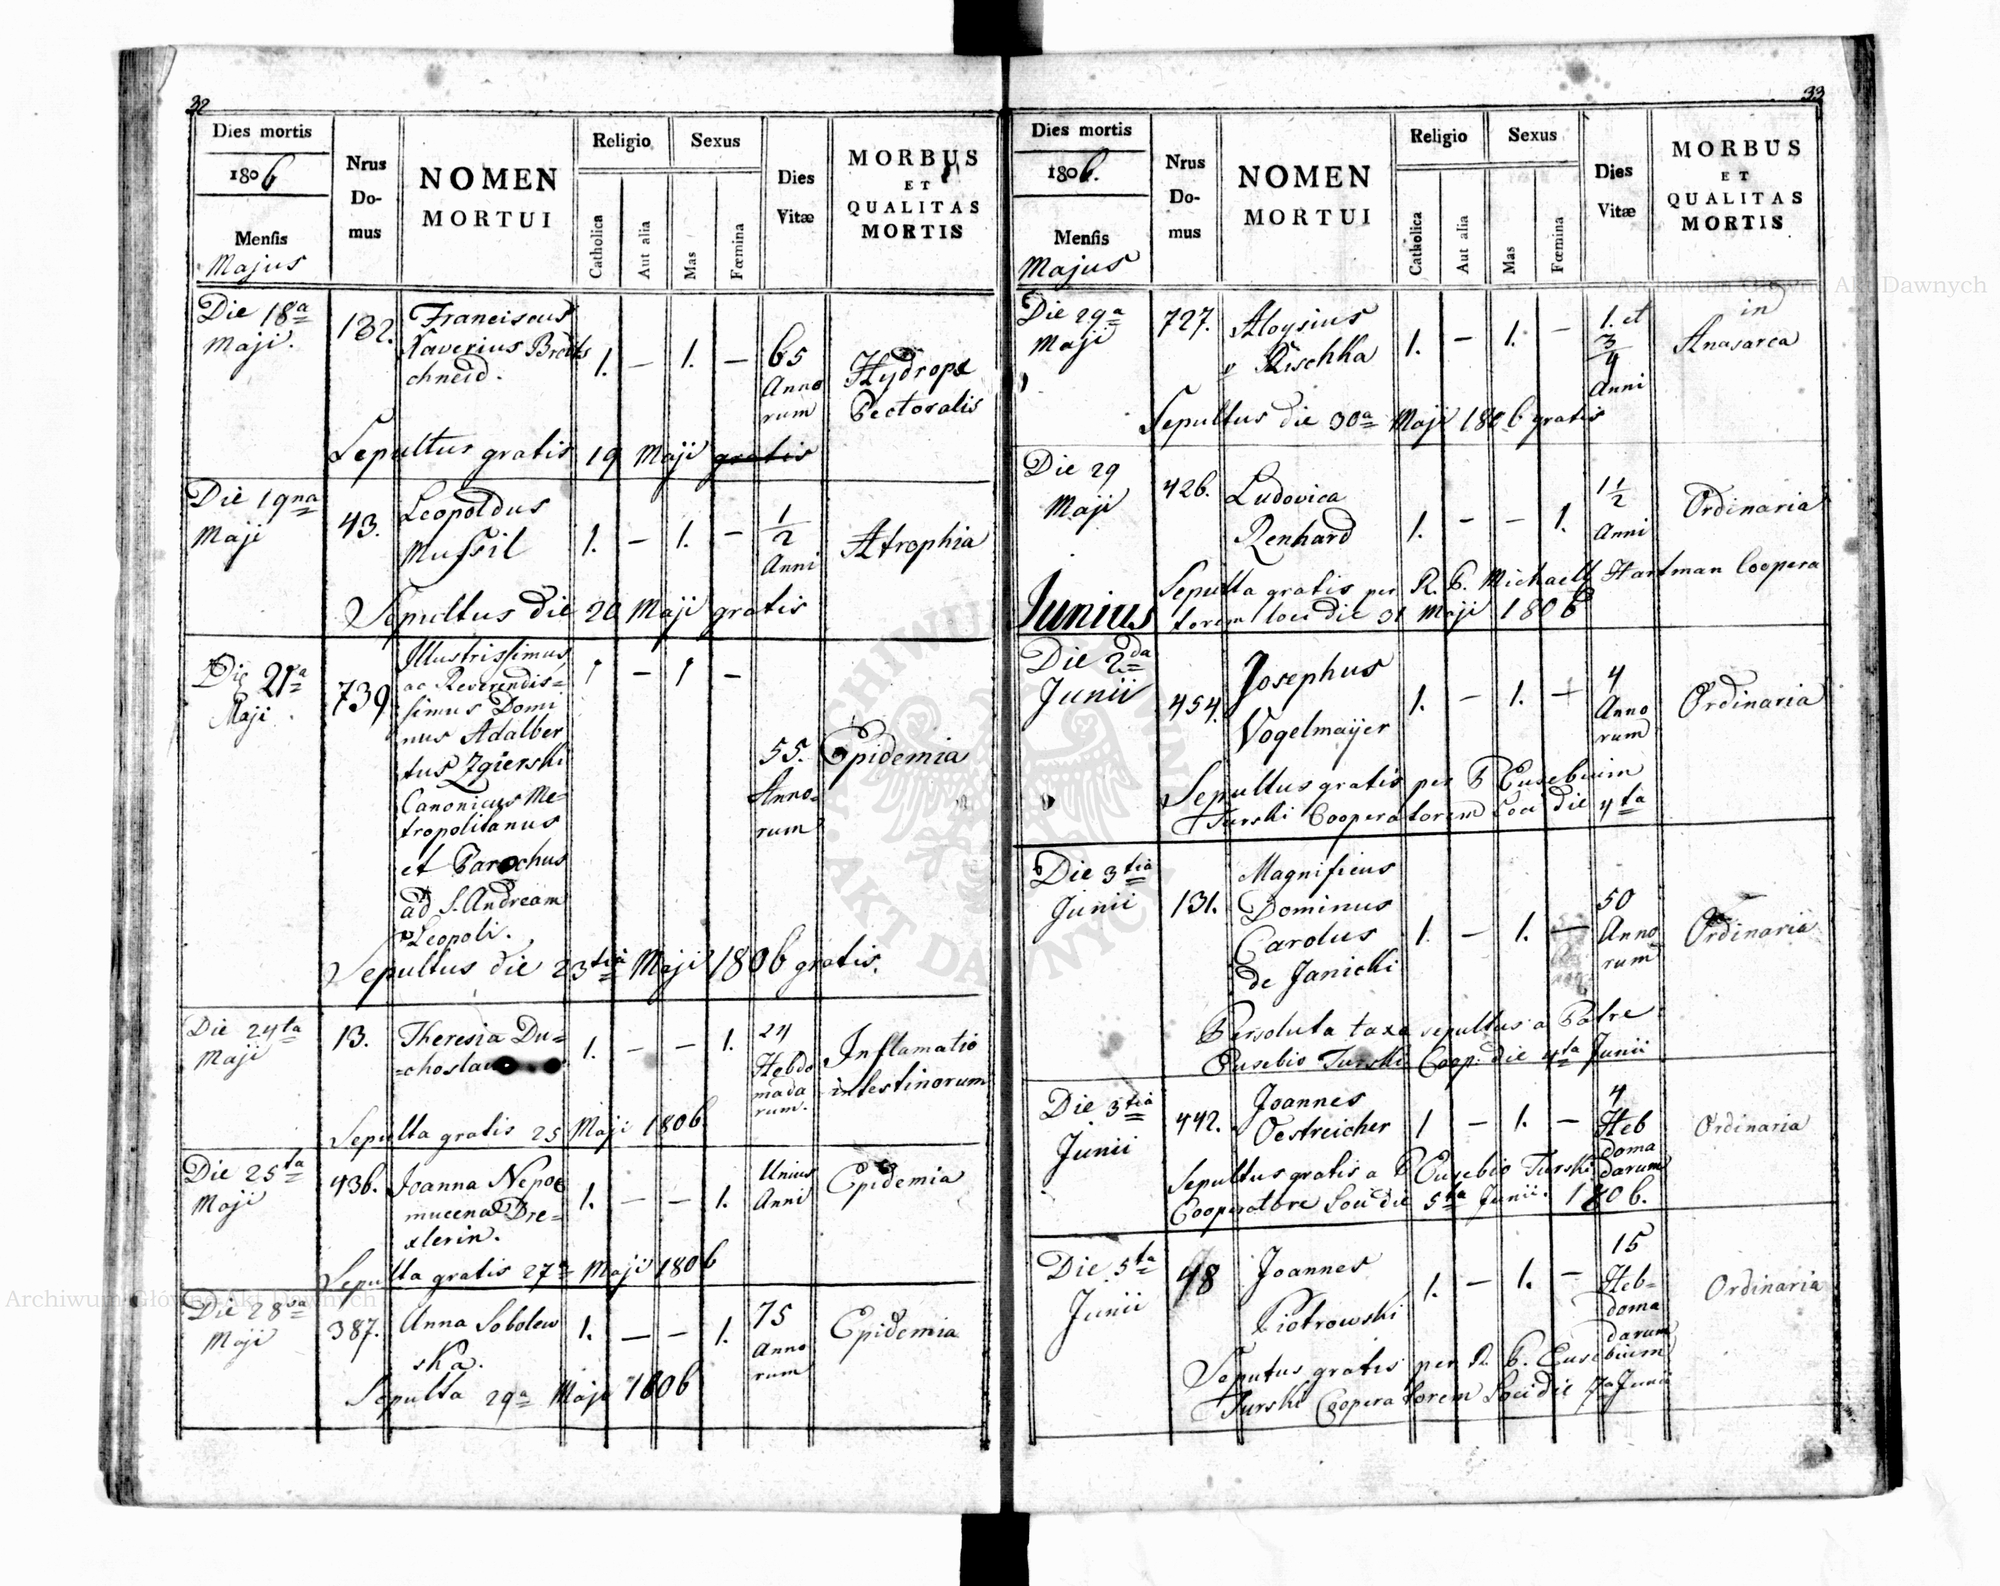 32
Dies mortis
1806
Mensis
Majus
Nrus
Do-
mus
NOMEN
MORTUI
Religio
Catholica
Aut alia
Sexus
Mas
Fœmina
Dies
Vitæ
MORBUS
ET
QUALITAS
MORTIS
Die 18a
Maji.
132.
Franciscus
Xaverius
chneid.
1. — 1. —
65
Anno
rum
Hydrops
Pectoralis
Sepultus gratis 19 Maji gratis
Die 19na
Maji
43.
Leopoldus
Mussil
1. — 1. —
1/2
Anni
Atrophia
Sepultus die 20 Maji gratis
Die 21a
Maji.
739
Illustrissimus
ac Reverendis=
simus Domi
nus Adalber
tus Zgierski
Canonicus Me=
tropolitanus
et Parochus
ad S. Andream
Leopoli.
1 — 1 —
55.
Anno=
rum
Epidemia
Sepultus die 23tia Maji 1806 gratis.
Die 24ta
Maji
13.
Theresia Du=
1. — — 1.
24
Hebdo
mada
rum.
Inflamatio
intestinorum
Sepulta gratis 25 Maji 1806
Die 25ta
Maji
436.
Joanna Nepo
mucena Dre=
xlerin.
1. — — 1.
Unius
Anni
Epidemia
Sepulta gratis 27a Maji 1806
Die 28va
Maji
387.
Anna Sobolew
ska.
1. — — 1.
75
Anno
rum
Epidemia
Sepulta 29a Maji 1806
33
Dies mortis
1806.
Mensis
Majus
Nrus
Do-
mus
NOMEN
MORTUI
Religio
Catholica
Aut alia
Sexus
Mas
Fœmina
Dies
Vitæ
MORBUS
ET
QUALITAS
MORTIS
Die 29a
Maji
727.
Aloysius
v Rischka
1. — 1. —
1. et
3/4
Anni
in
Anasarca
Sepultus die 30a Maji 1806 gratis
Die 29
Maji
426.
Ludovica
Renhard
1. — — 1.
1 1/2
Anni
Ordinaria
Sepulta gratis per R. P. Hartman Coopera
torem loci die 31 Maji 1806
Junius
Die 2da
Junii
454.
Josephus
Vogelmaÿer
1. — 1. —
4
Anno
rum
Ordinaria
Sepultus gratis per P Eusebium
Turski Cooperatorem Loci die 4ta
Die 3tia
Junii
131.
Magnificus
Dominus
Carolus
de Janicki
1. — 1. —
50
Anno
rum
Ordinaria
Persoluta taxa sepultus a Patre
Eusebio Turski Coop. die 4ta Junii
Die 3tia
Junii
442.
Joannes
Oestreicher
1 — 1. —
4
Heb
doma
darum
Ordinaria
Sepultus gratis a P Eusebio Turski
Cooperatore Loci die 5ta Junii. 1806.
Die 5ta
Junii
48
Joannes
Piotrowski
1. — 1. —
15
Heb=
doma
darum
Ordinaria
Seputus gratis per R. P. Eusebium
Turski Cooperatorem Loci die 7a Junii
Archiwum Główne Akt Dawnych
Archiwum Główne Akt Dawnych